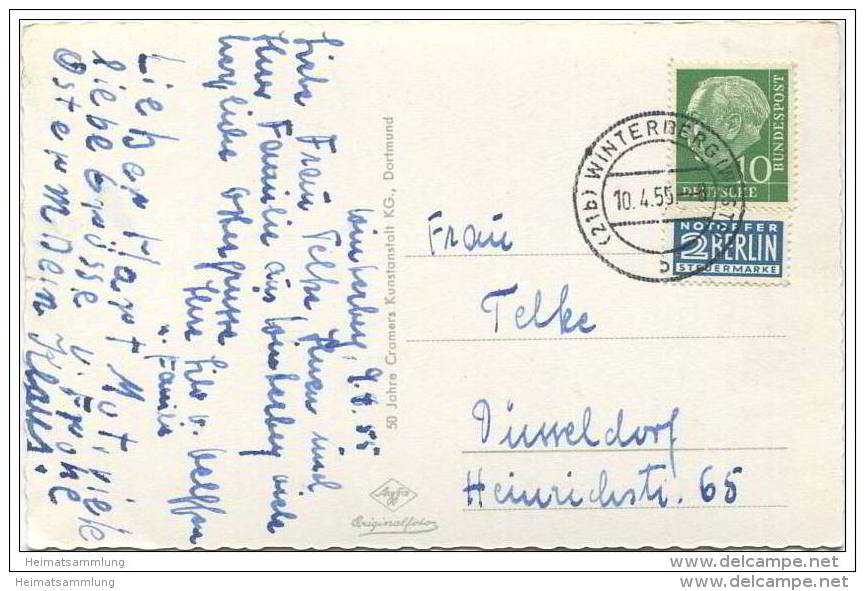 Winterberg, 9.4.55
Liebe Frau Telke Ihnen und
Ihrer Familie aus Winterberg viele
herzliche Ostergrüsse
Ihre
u. Familie
Lieber Hartmot, viele
liebe Grüsse u. Frohe
Ostern Dein Klaus.
50 Jahre Cramers Kunstanstalt KG., Dortmund
Agfa
Originalfoto
10
DEUTSCHE
BUNDESPOST
(21b) WINTERBERG
10.4.55
b
NOTOPFER
2 BERLIN
STEUERMARKE
Frau
Telke
Düsseldorf
Heinrichstr. 65
Heimatsammlung
Heimatsammlung
www.delcampe.net